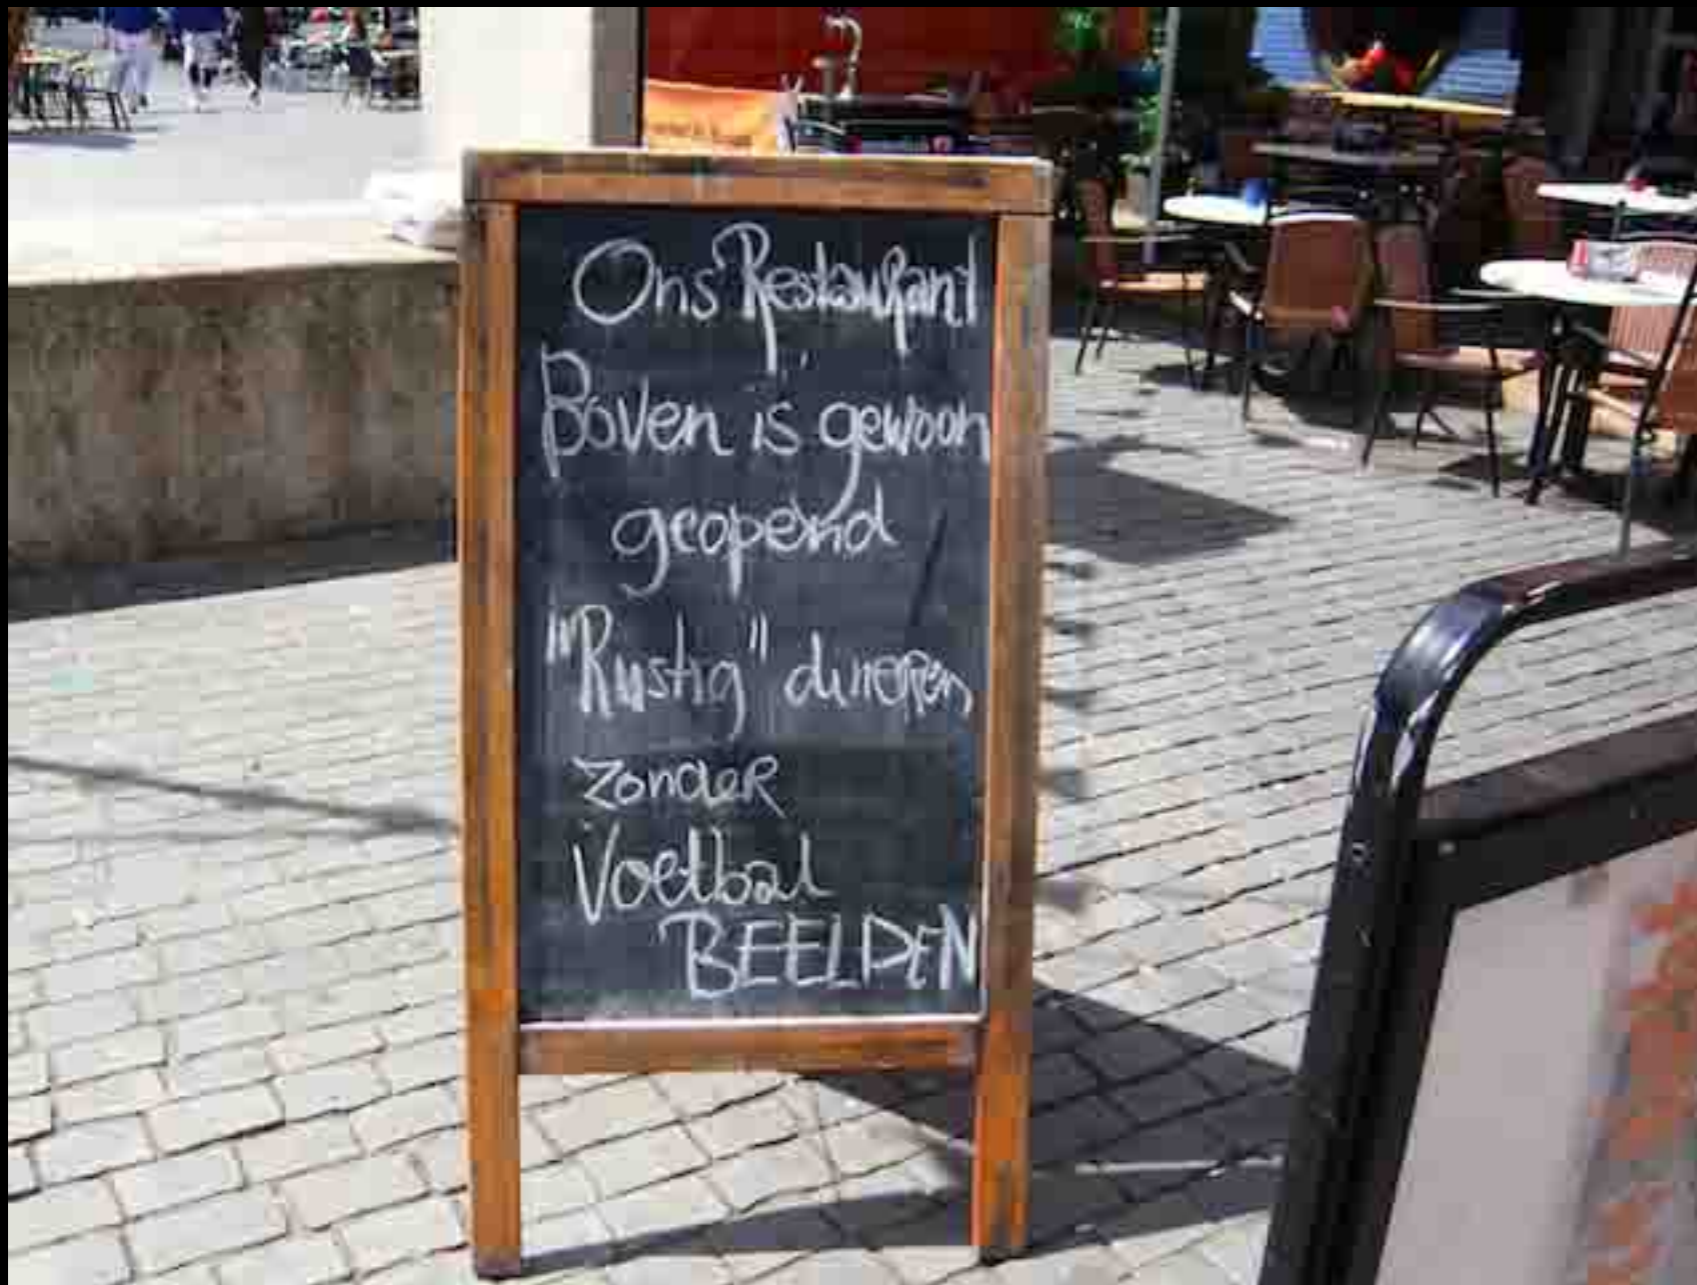 Ons Restaurant
Boven is gewoon
geopend
"Rustig" dineren
zonder
Voetbal
BEELDEN